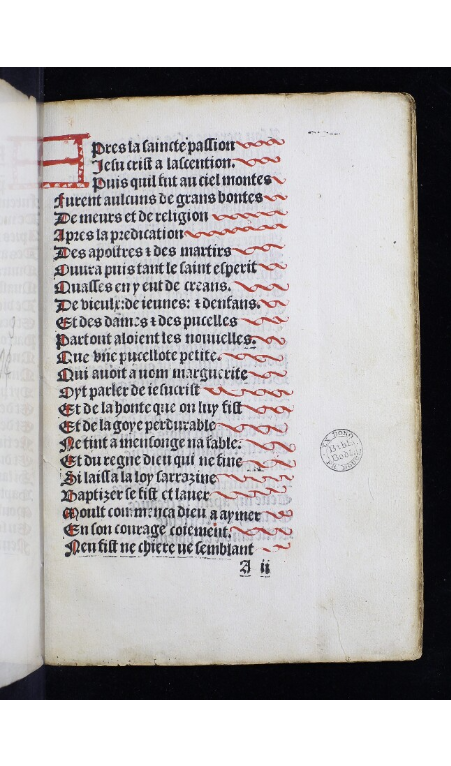 Apres la saincte passion
Jesu crist a lascention.
Puis quil fut au ciel montes
Furent aulcuns de grans bontes
De meurs et de religion
Apres la predication
Des apostres ⁊ des martirs
Ouura puis tant le saint esperit
Quasses en y eut de creans.
De vieulx: de ieunes: ⁊ denfans.
Et des dames ⁊ des pucelles
Partout aloient les nouuelles.
Que vne pucellote petite.
Qui auoit a nom marguerite
Oyt parler de iesucrist
Et de la honte que on luy fist
Et de la goye perdurable
Ne tint a mensonge na fable.
Et du regne dieu qui ne fine
Si laissa la loy sarrazine
Baptizer se fist et lauer
Moult commenca dieu a aymer
En son courage coiement.
Nen fist ne chiere ne semblant
A ii